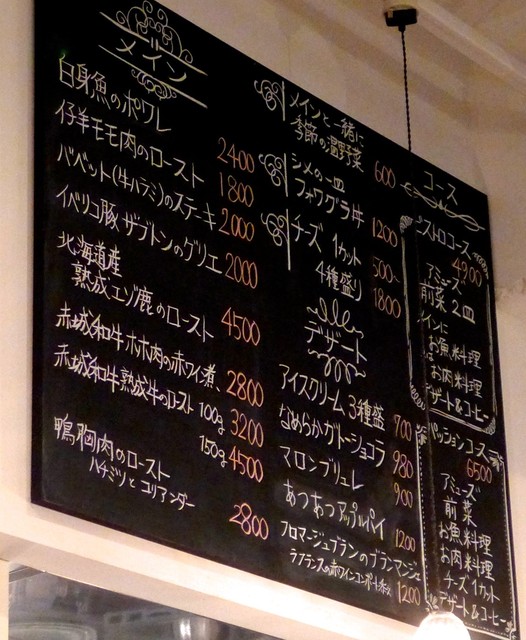 メイン
白身魚のポワレ 2400
仔羊モモ肉のロースト 1800
バベット(牛ハラミ)のステーキ 2000
イベリコ豚 ザブトンのグリエ 2000
北海道産
熟成エゾ鹿のロースト 4500
赤城和牛ホホ肉の赤ワイン煮 2800
赤城和牛熟成牛のロースト 100g 3200
150g 4500
鴨胸肉のロースト
ハチミツとコリアンダー 2800
メインと一緒に
季節の温野菜 600
シメの一皿
フォワグラ丼 1200
チーズ 1カット 500〜
4種盛り 1800
デザート
アイスクリーム 3種盛 700
なめらかガトーショコラ 980
マロンブリュレ 900
あつあつアップルパイ 1200
フロマージュブランのブランマンジェ
ラフランスの赤ワインコンポート添え 1200
コース
ストロコース
4900
アミューズ
前菜 2皿
インに
お魚料理
お肉料理
デザート&コーヒー
パッションコース
6500
アミューズ
前菜
お魚料理
お肉料理
チーズ1カット
デザート&コーヒー